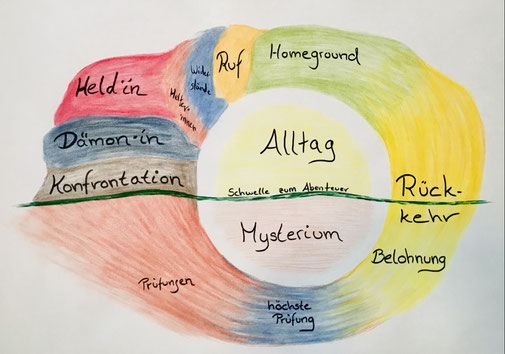 Homeground
Ruf
Wider-
stände
Helfer·
innen
Held·in
Dämon·in
Konfrontation
Alltag
Schwelle zum Abenteuer
Mysterium
Rück-
kehr
Belohnung
Prüfungen
höchste
Prüfung